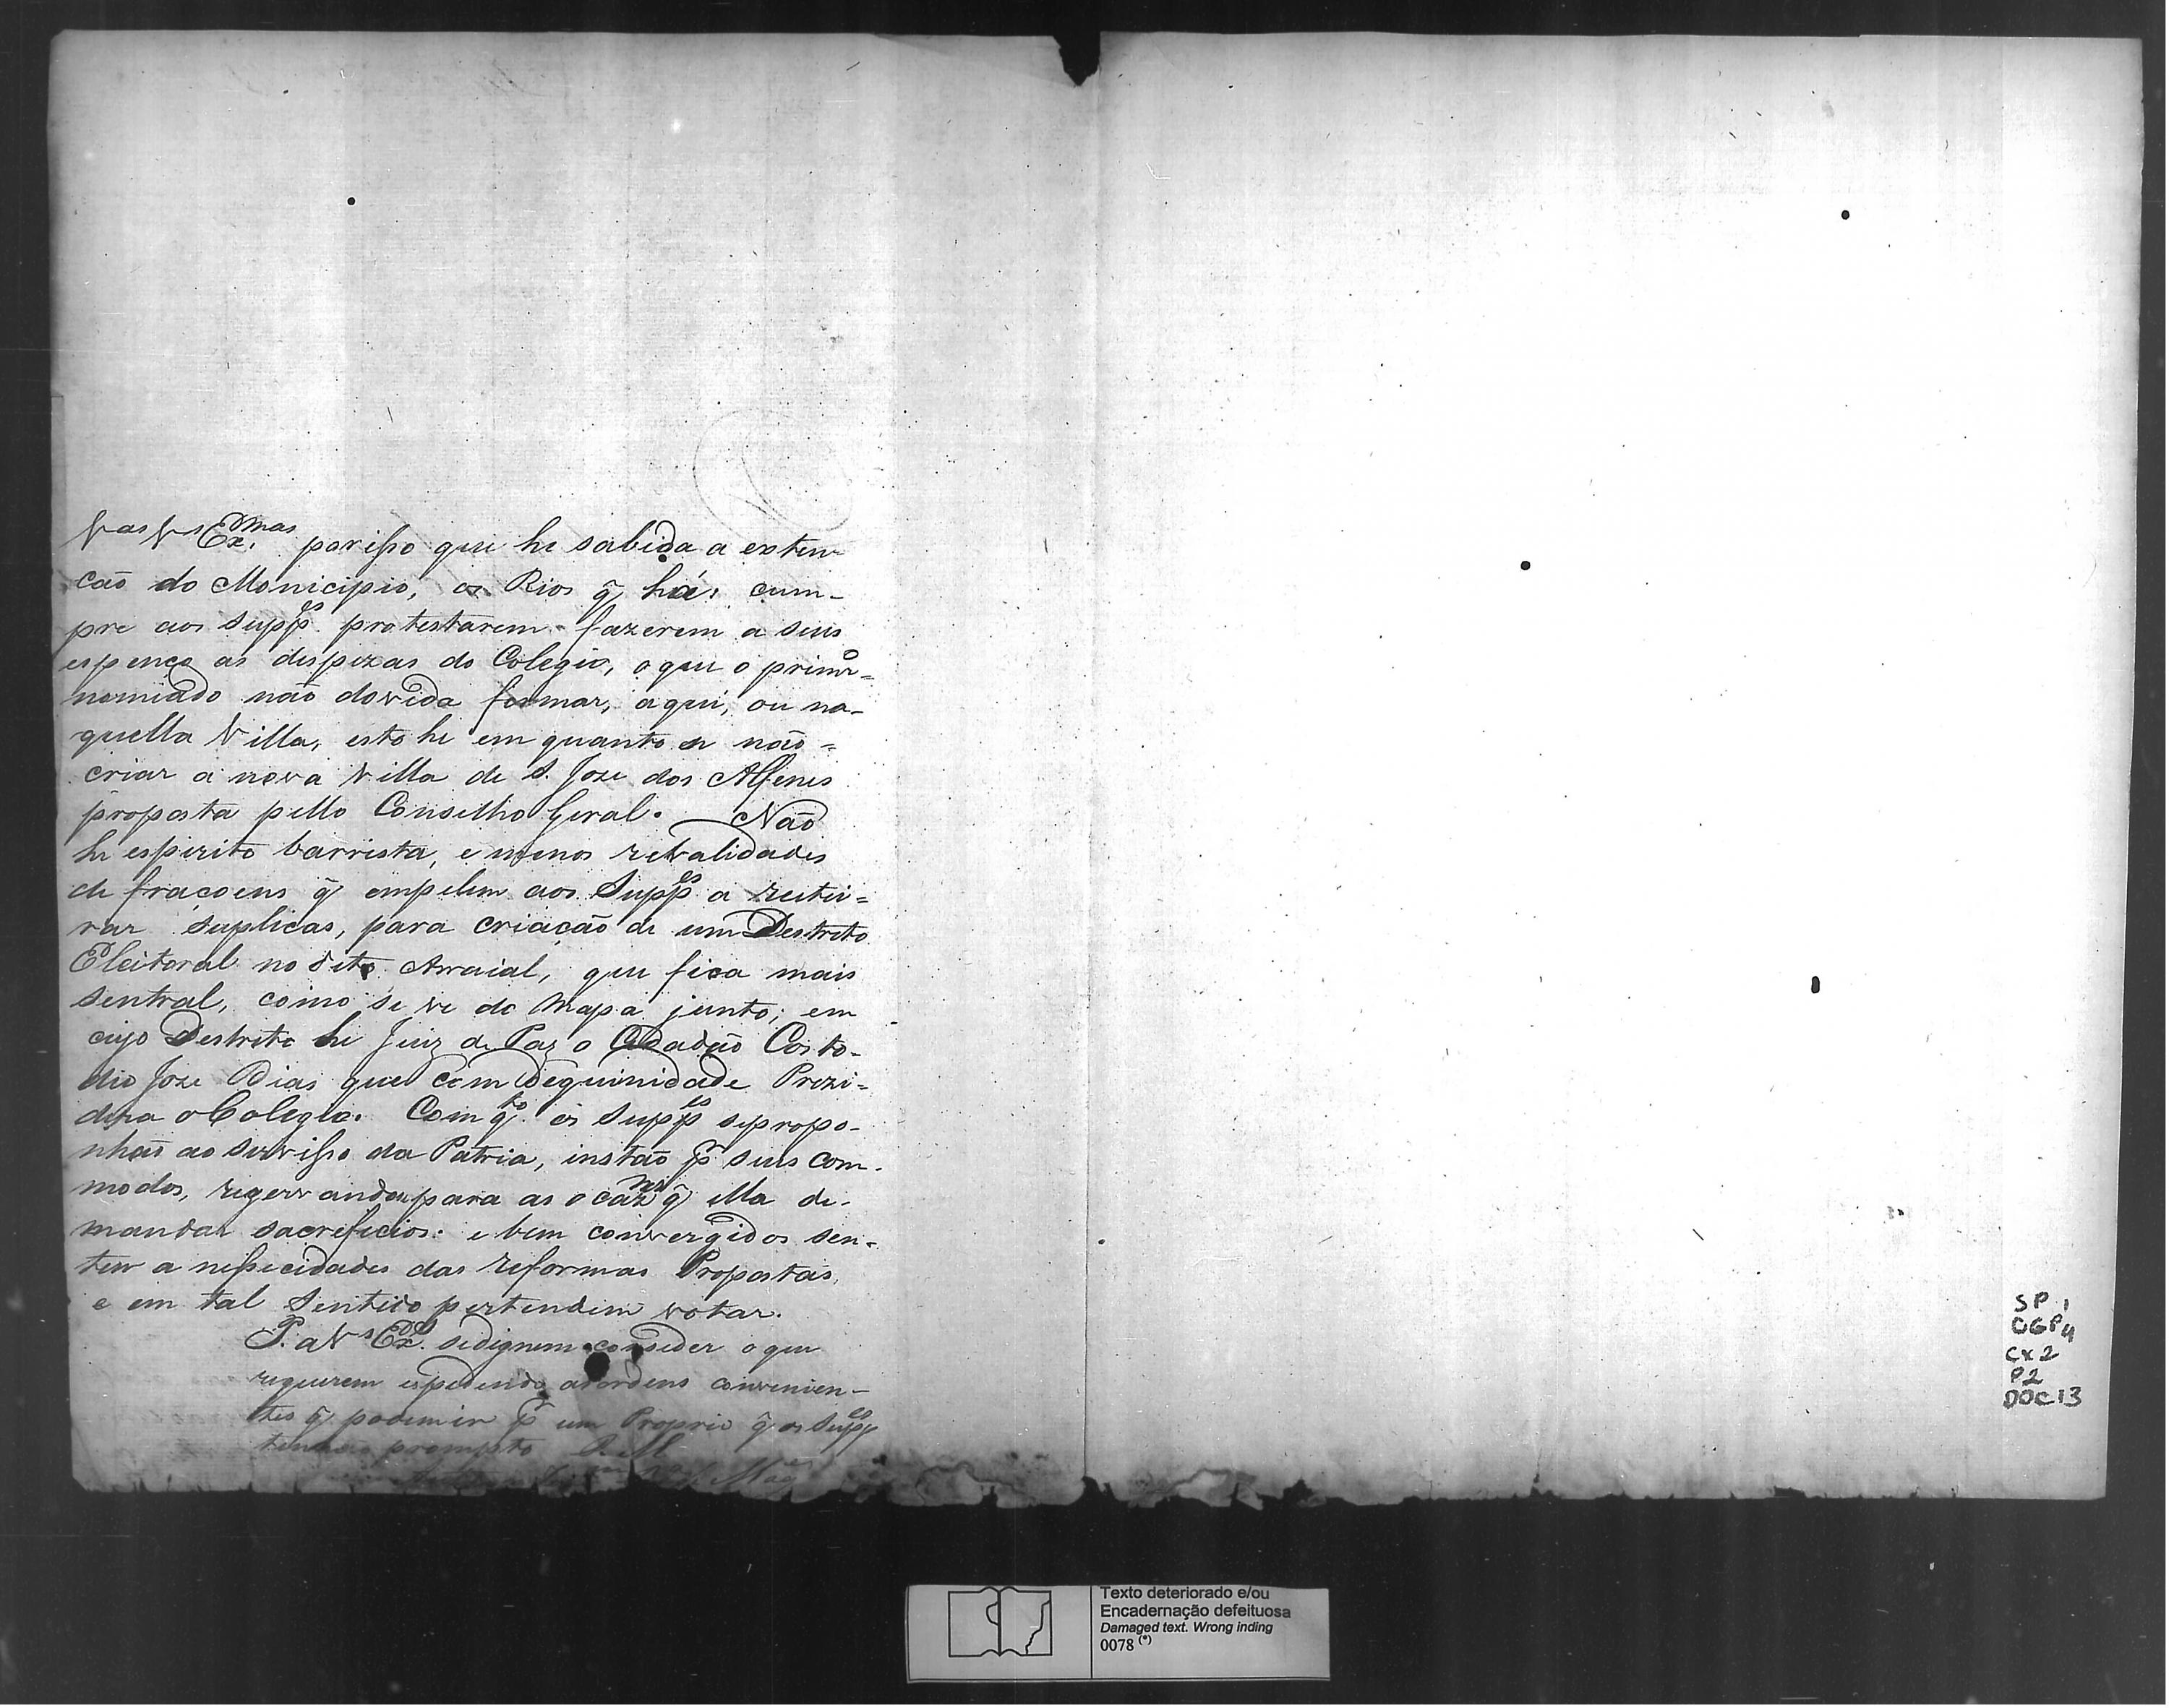 Vas Vs Exmas porisso que he sabida a exten-
ção do Monicipio, os Rios q̃ há: cum-
pre aos Suppes protestarem fazerem a seus
espença as dispezas do Colegio, o que o primro
nomiado não dovida formar, aqui, ou na-
quella Villa, esto he em quanto se não =
criar a nova Villa de S. Joze dos Alfenes
proposta pello Conselho Geral. Não
he espirito barrista, e menos rivalidades
de fraçoens q̃ empelem aos Suppes a reitir=
rar suplicas, para criação de um Destrito
Eleitoral no dito Arraial, que fica mais
sentral, como se ve do Mapa junto; em
cujo Destrito he Juiz de Paz o Cidadão Costo-
dio Joze Dias que com deguinidade Prezi=
dira o Colegio. Com qto os Suppes se propo-
nhaõ ao servisso da Patria, instaõ pr seus com-
modos, rezervandou para as ocazns q̃ ella de-
mandar sacreficios: e bem convergidos sen-
tem a nessecidades das reformas Propostas,
e em tal Sentido pertendem votar.
P. a Vs Exas sedignem conseder o que
requerem espedindo as ordens convenien-
tes q̃ podem ir pr um Proprio q̃ os Suppes
prompto
SP 1
CGP4
CX 2
P2
DOC 13
Texto deteriorado e/ou
Encadernação defeituosa
Damaged text. Wrong inding
0078 (*)